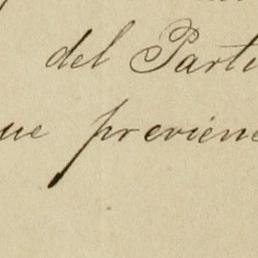 del Parti
ue previene